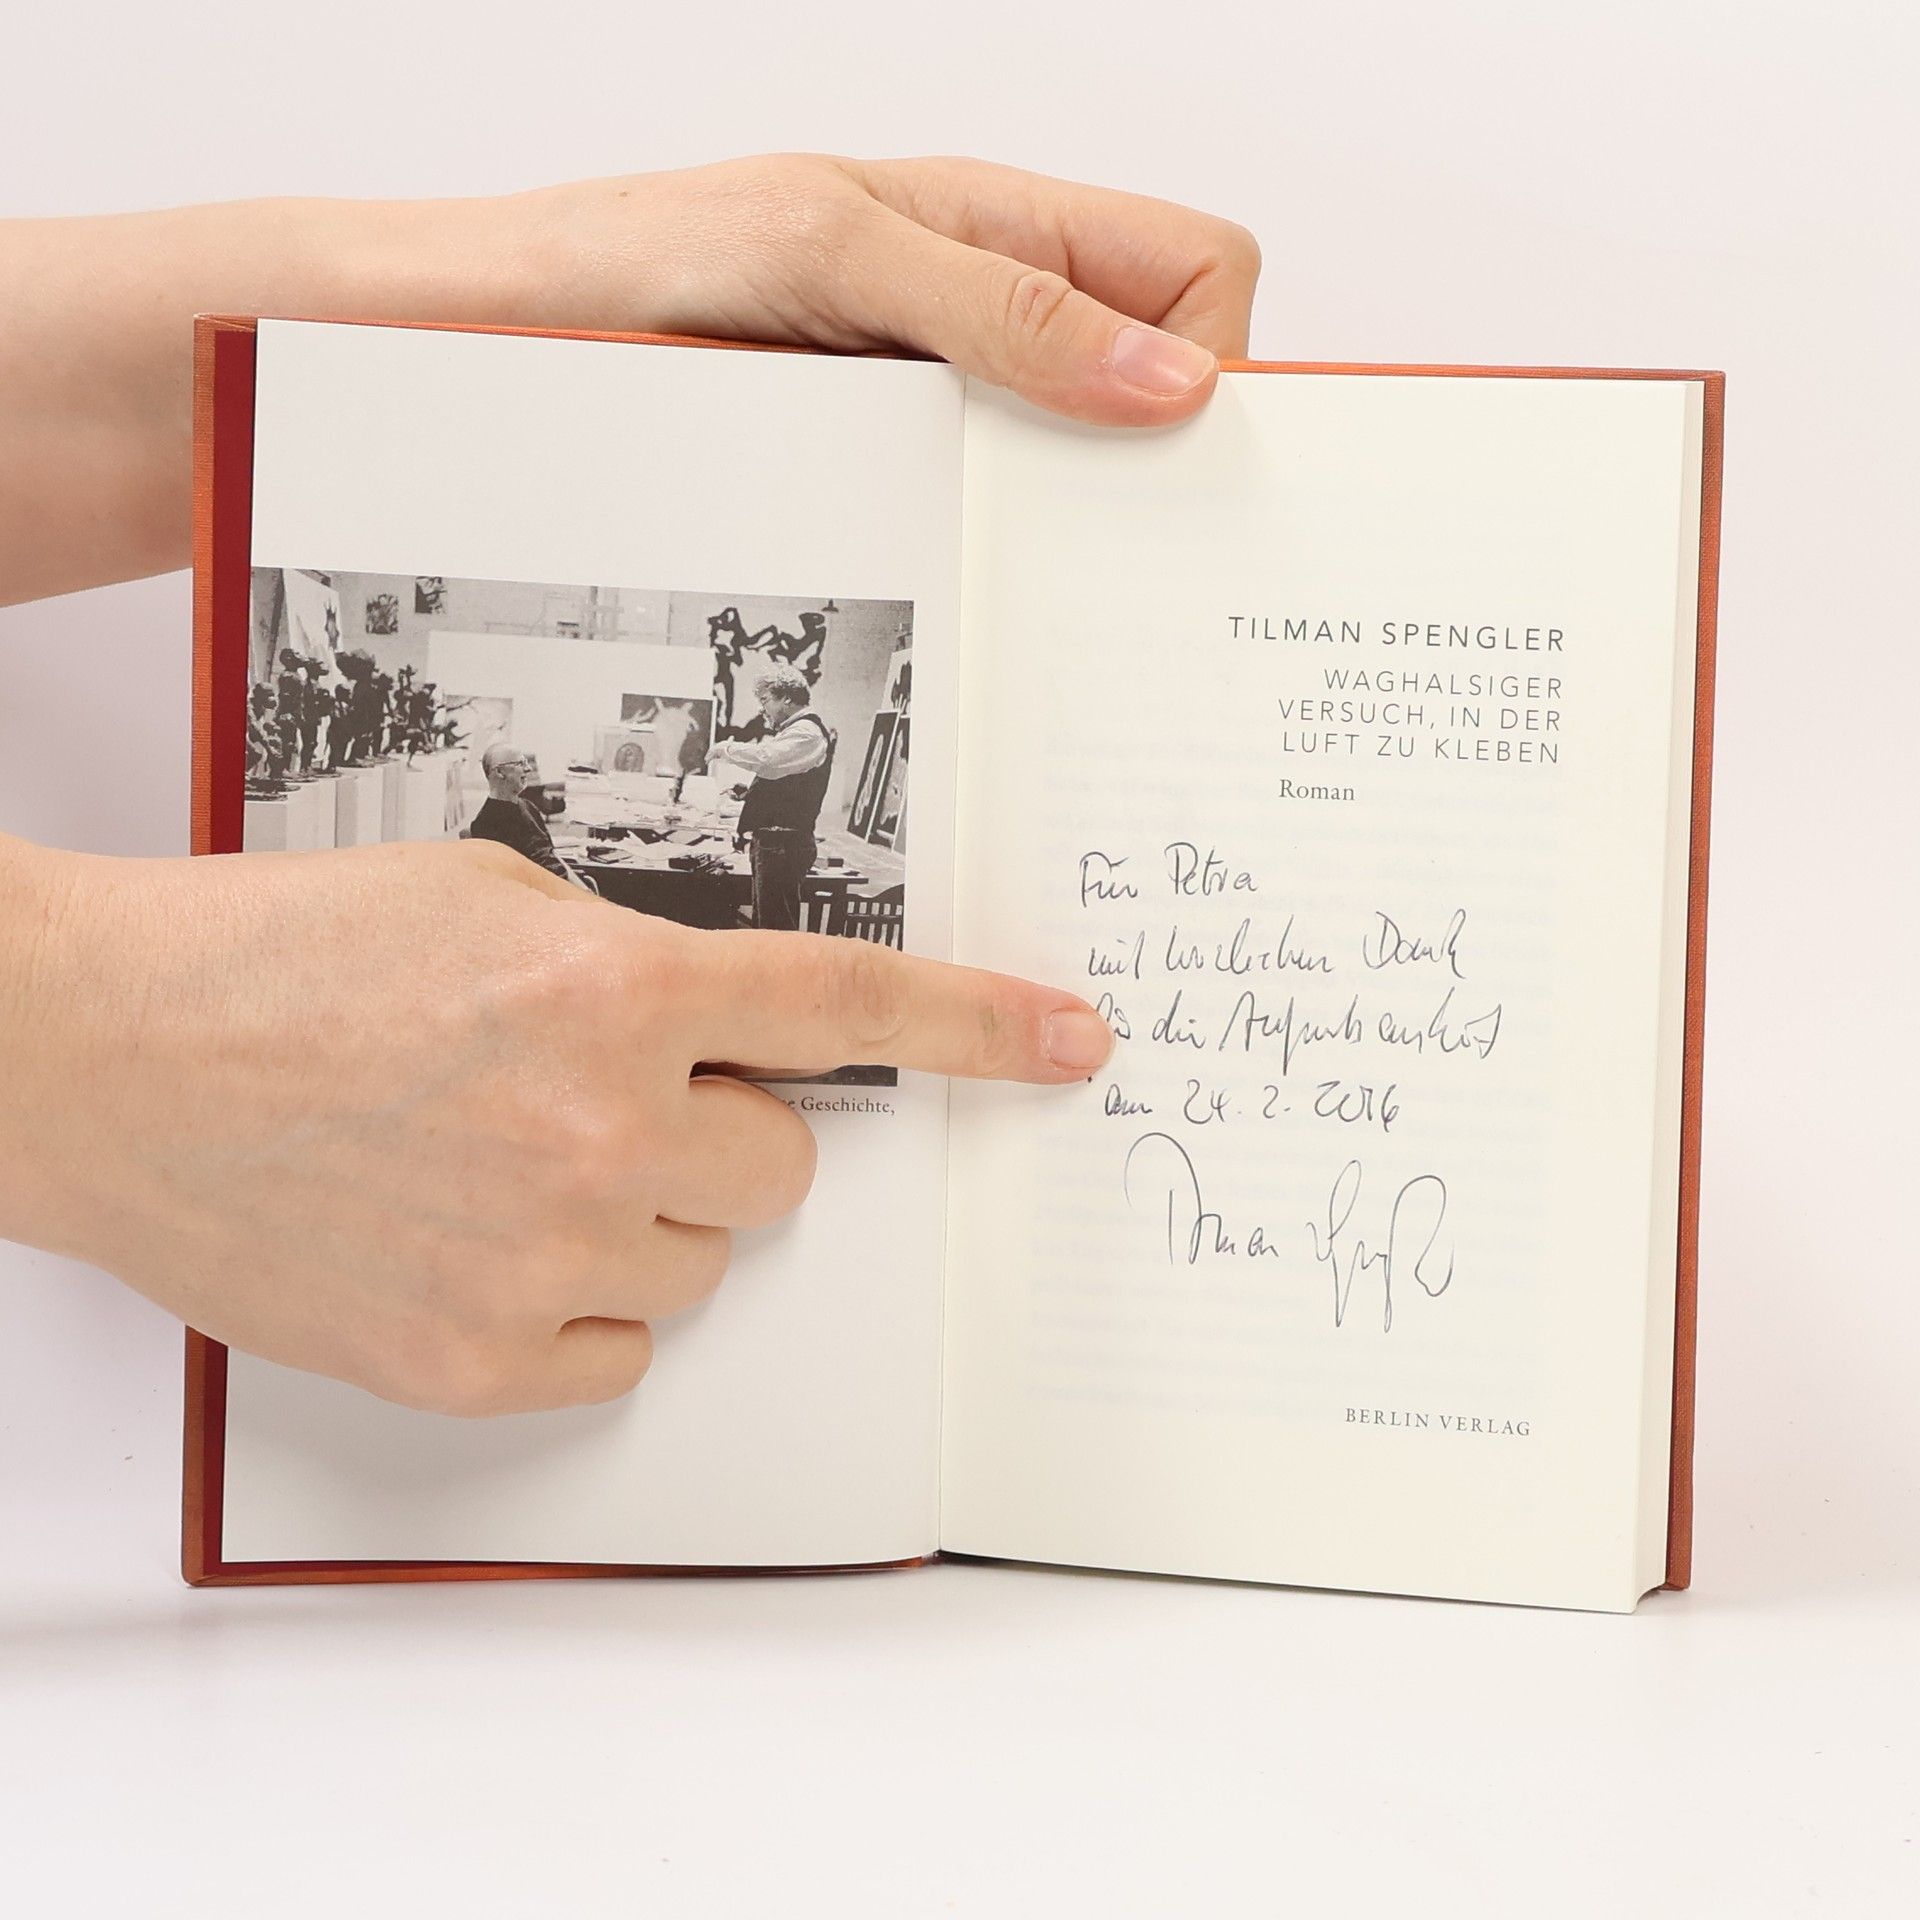 Geschichte,
TILMAN SPENGLER
WAGHALSIGER
VERSUCH, IN DER
LUFT ZU KLEBEN
Roman
Für Petra
mit herzlichem Dank
die
am 24. 2. 2016
Tilman Spengler
BERLIN VERLAG